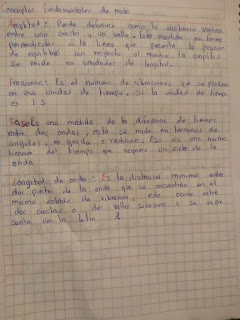 Conceptos fundamentales de onda
Amplitud: Puede definirse como la distancia vertical
entre una cresta y un valle. Esta medida en forma
perpendicular a la linea que representa la posición
de equilibrio con respecto al medio, la amplitud
se mide en unidades de longitud.
Frecuencia: Es el numero de vibraciones que se producen
en una unidad de tiempo. Si la unidad de tiempo
es 1 s
Fase: Es una medida de la diferencia de tiempo
entre dos ondas, esta se mide en terminos de
angulos, en grados o radianes. Es es una norma
del tiempo que requiere un ciclo de la
onda.
Longitud de onda: Es la distancia minima entre
dos puntos de la onda que se encuentran en el
mismo estado de vibracion, esto ocurre entre
dos crestas o dos valles sucesivos o se repre
senta con la letra λ